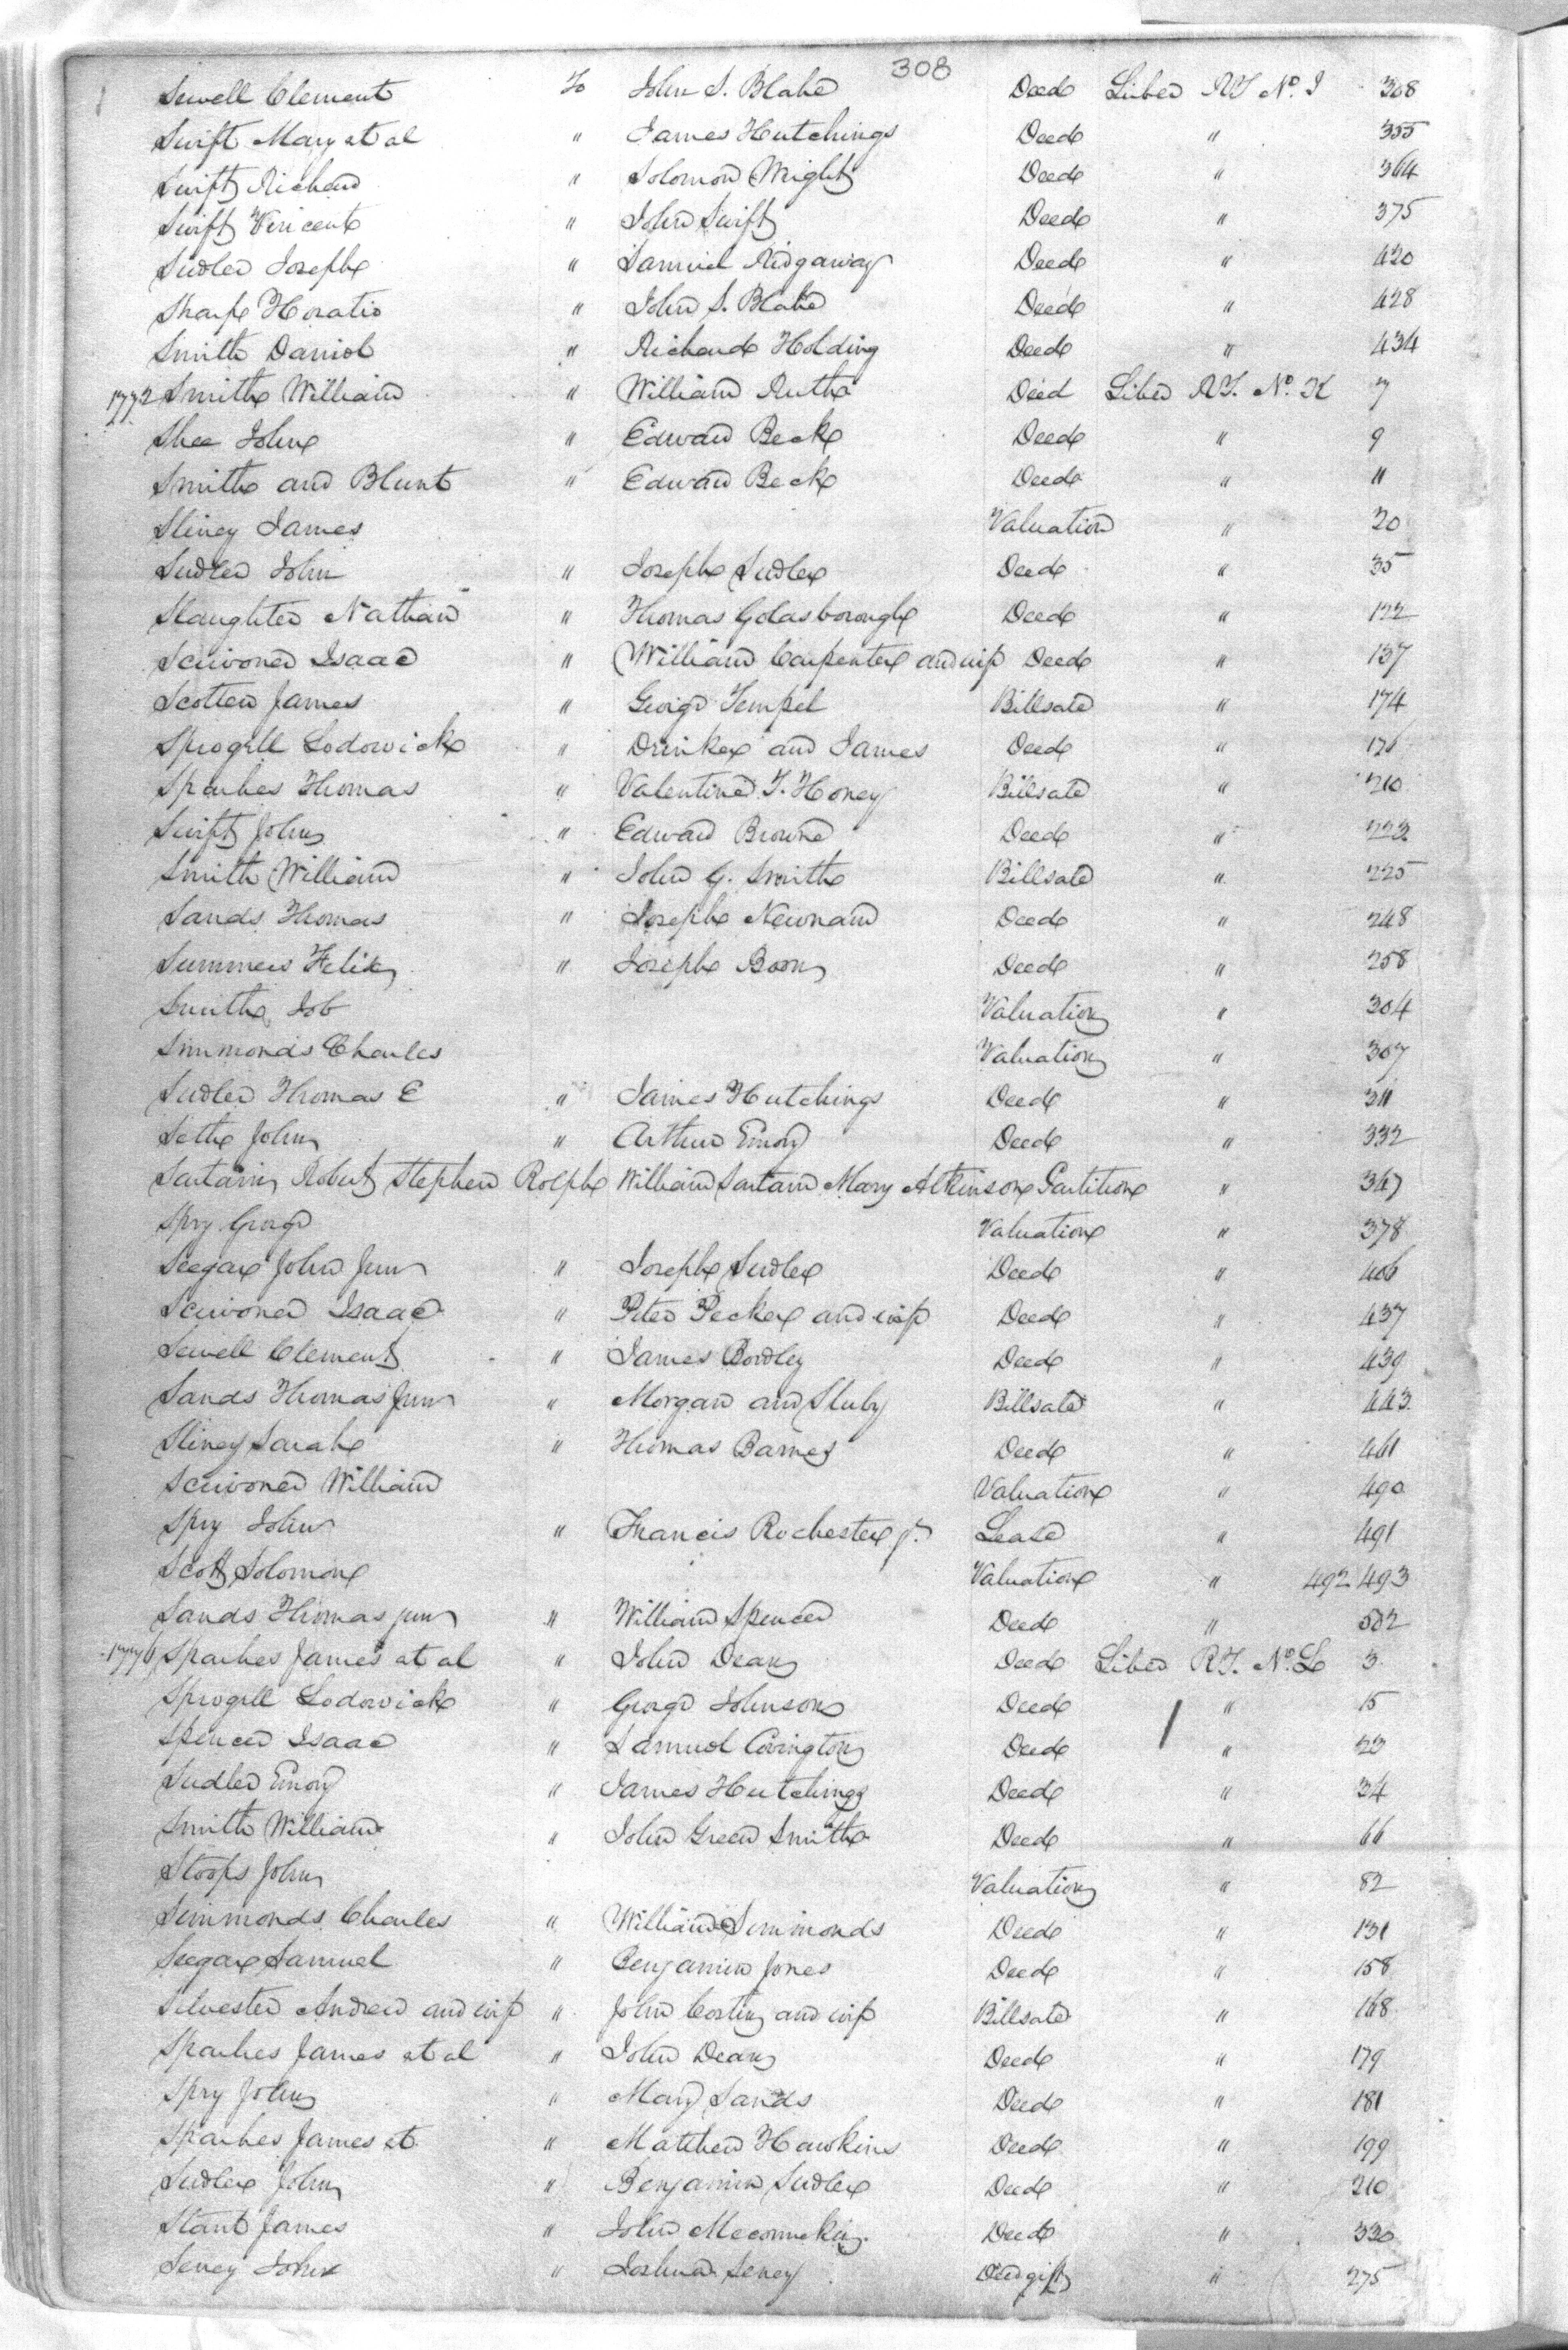 308
Sewell Clement To John S. Blake Deed Liber RT No. I 308
Swift Mary et al " James Hutchings Deed " 355
Swift Richard " Solomon Wright Deed " 364
Swift Vincent " John Swift Deed " 375
Sudler Joseph " Samuel Ridgaway Deed " 420
Sharpe Horatio " John S. Blake Deed " 428
Smith Daniel " Richard Holding Deed " 434
1772 Smith William " William Ruth Deed Liber RT. No. K 7
Shee John " Edward Beck Deed " 9
Smith and Blunt " Edward Beck Deed " 11
Sliney James Valuation " 20
Sudler John " Joseph Sudler Deed " 35
Slaughter Nathan " Thomas Goldsborough Deed " 122
Scrivoner Isaac " William Carpenter and wife Deed " 137
Scotten James " George Tempel Billsale " 174
Sprogell Lodowick " Drinker and James Deed " 176
Sparkes Thomas " Valentine T. Honey Billsale " 210
Swift John " Edward Browne Deed " 223
Smith William " John G. Smith Billsale " 225
Sands Thomas " Joseph Newnam Deed " 248
Summers Felix " Joseph Boon Deed " 258
Smith Job Valuation " 304
Simmonds Charles Valuation " 307
Sudler Thomas E " James Hutchings Deed " 311
Seth John " Arthur Emory Deed " 332
Sartain Robert Stephen Rolph William Sartain Mary Atkinson Partition " 347
Spry George Valuation " 378
Seegar John Jun " Joseph Sudler Deed " 406
Scrivoner Isaac " Peter Pecker and wife Deed " 437
Sewell Clement " James Bordley Deed " 439
Sands Thomas Jun " Morgan and Sluby Billsale " 443
Sliney Sarah " Thomas Barnes Deed " 461
Scrivoner William Valuation " 490
Spry John " Francis Rochester Jr. Lease " 491
Scott Solomon Valuation " 492 493
Sands Thomas jun " William Spencer Deed " 502
1776 Sparkes James et al " John Dean Deed Liber RT. No. L 3
Sprogell Lodowick " George Johnson Deed " 15
Spencer Isaac " Samuel Covington Deed " 23
Sudler Emory " James Hutchings Deed " 34
Smith William " John Green Smith Deed " 66
Stoops John Valuation " 82
Simmonds Charles " William Simmonds Deed " 131
Seegar Samuel " Benjamin Jones Deed " 158
Silvester Andrew and wife " John Costin and wife Billsale " 168
Sparkes James et al " John Dean Deed " 179
Spry John " Mary Sands Deed " 181
Sparkes James et " Matthew Hawkins Deed " 199
Sudler John " Benjamin Sudler Deed " 210
Stant James " John Meconnekin Deed " 330
Seney John " Joshua Seney Deedgift " 275